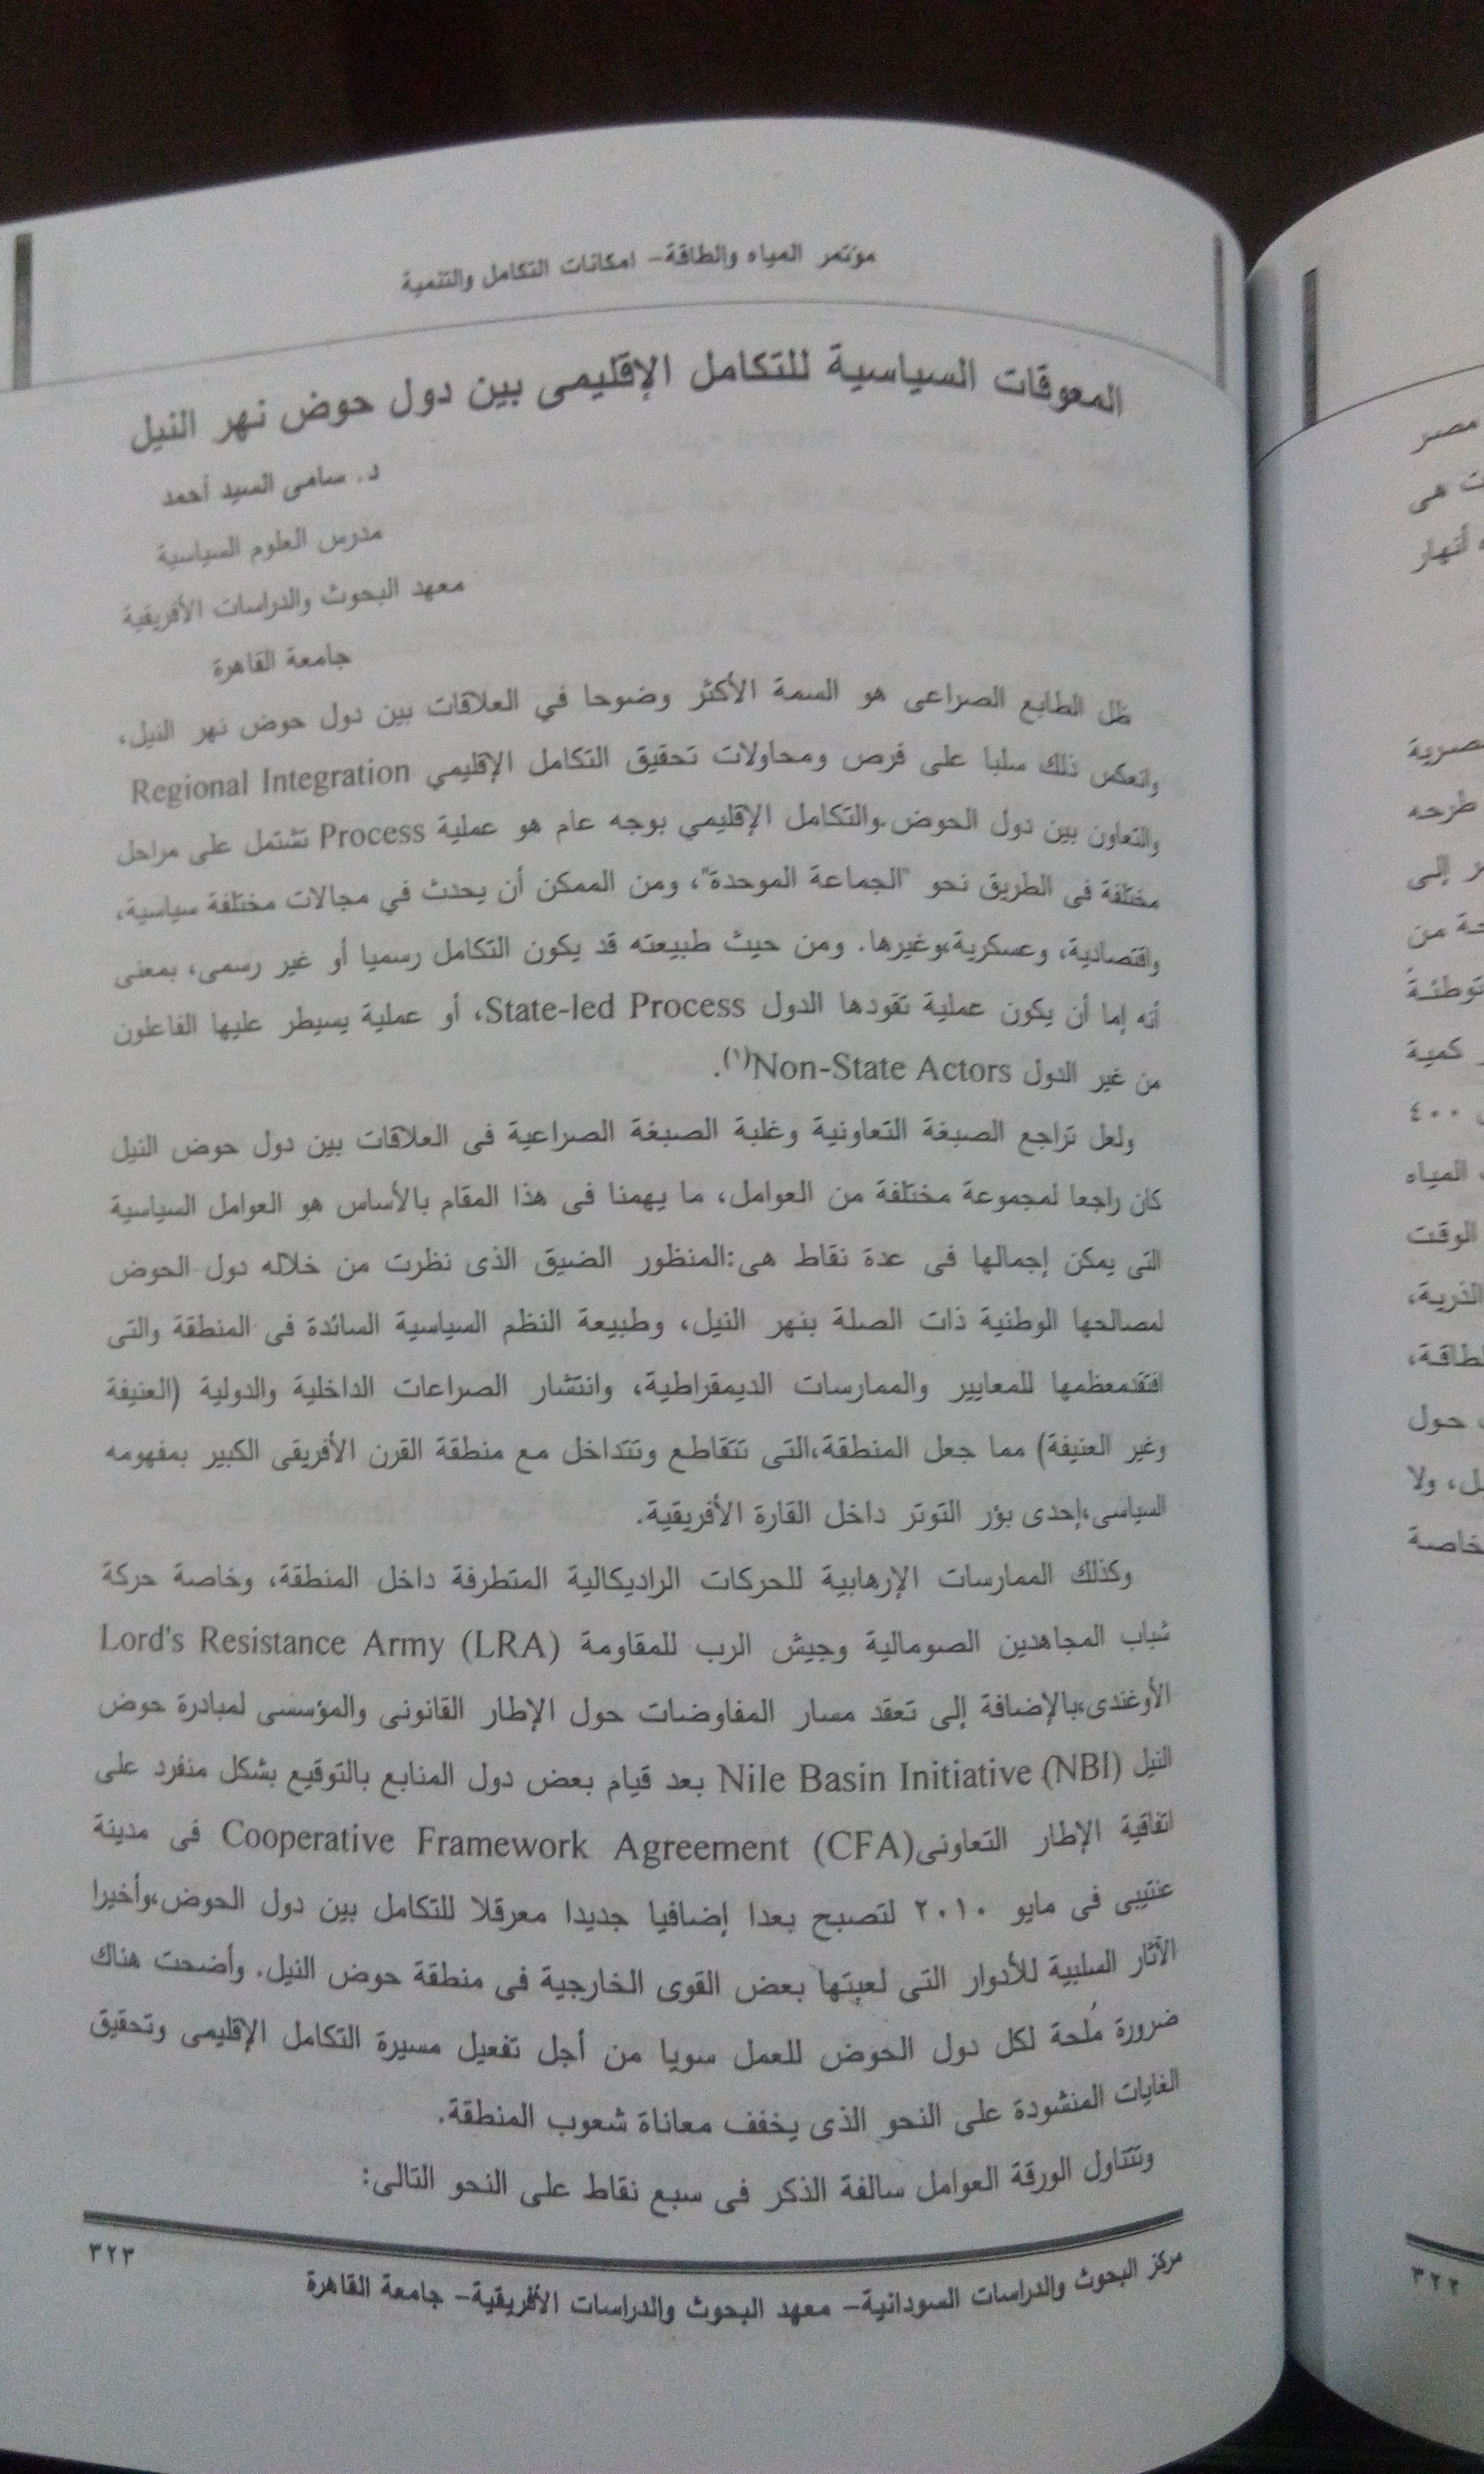 مؤتمر المياه والطاقة- امكانات التكامل والتنمية
المعوقات السياسية للتكامل الإقليمى بين دول حوض نهر النيل
د. سامى السيد أحمد
مدرس العلوم السياسية
معهد البحوث والدراسات الأفريقية
جامعة القاهرة
ظل الطابع الصراعى هو السمة الأكثر وضوحا في العلاقات بين دول حوض نهر النيل،
وانعكس ذلك سلبا على فرص ومحاولات تحقيق التكامل الإقليمي Regional Integration
والتعاون بين دول الحوض.والتكامل الإقليمي بوجه عام هو عملية Process تشتمل على مراحل
مختلفة فى الطريق نحو "الجماعة الموحدة"، ومن الممكن أن يحدث في مجالات مختلفة سياسية،
واقتصادية، وعسكرية،وغيرها. ومن حيث طبيعته قد يكون التكامل رسميا أو غير رسمى، بمعنى
أنه إما أن يكون عملية تقودها الدول State-led Process، أو عملية يسيطر عليها الفاعلون
من غير الدول Non-State Actors(١).
ولعل تراجع الصبغة التعاونية وغلبة الصبغة الصراعية فى العلاقات بين دول حوض النيل
كان راجعا لمجموعة مختلفة من العوامل، ما يهمنا فى هذا المقام بالأساس هو العوامل السياسية
التى يمكن إجمالها فى عدة نقاط هى:المنظور الضيق الذى نظرت من خلاله دول الحوض
لمصالحها الوطنية ذات الصلة بنهر النيل، وطبيعة النظم السياسية السائدة فى المنطقة والتى
افتقدمعظمها للمعايير والممارسات الديمقراطية، وانتشار الصراعات الداخلية والدولية (العنيفة
وغير العنيفة) مما جعل المنطقة،التى تتقاطع وتتداخل مع منطقة القرن الأفريقى الكبير بمفهومه
السياسى،إحدى بؤر التوتر داخل القارة الأفريقية.
وكذلك الممارسات الإرهابية للحركات الراديكالية المتطرفة داخل المنطقة، وخاصة حركة
شباب المجاهدين الصومالية وجيش الرب للمقاومة Lord's Resistance Army (LRA)
الأوغندى،بالإضافة إلى تعقد مسار المفاوضات حول الإطار القانونى والمؤسسى لمبادرة حوض
النيل Nile Basin Initiative (NBI) بعد قيام بعض دول المنابع بالتوقيع بشكل منفرد على
اتفاقية الإطار التعاونى Cooperative Framework Agreement (CFA) فى مدينة
عنتيبى فى مايو ٢٠١٠ لتصبح بعدا إضافيا جديدا معرقلا للتكامل بين دول الحوض،وأخيرا
الآثار السلبية للأدوار التى لعبتها بعض القوى الخارجية فى منطقة حوض النيل. وأضحت هناك
ضرورة مُلحة لكل دول الحوض للعمل سويا من أجل تفعيل مسيرة التكامل الإقليمى وتحقيق
الغايات المنشودة على النحو الذى يخفف معاناة شعوب المنطقة.
وتتناول الورقة العوامل سالفة الذكر فى سبع نقاط على النحو التالى:
مركز البحوث والدراسات السودانية- معهد البحوث والدراسات الأفريقية- جامعة القاهرة
٣٢٣
مصر
هى
أنهار
طرحه
إلى
من
توطئة
كمية
٤٠٠
المياه
الوقت
الذرية،
حول
ولا
٣٢٢